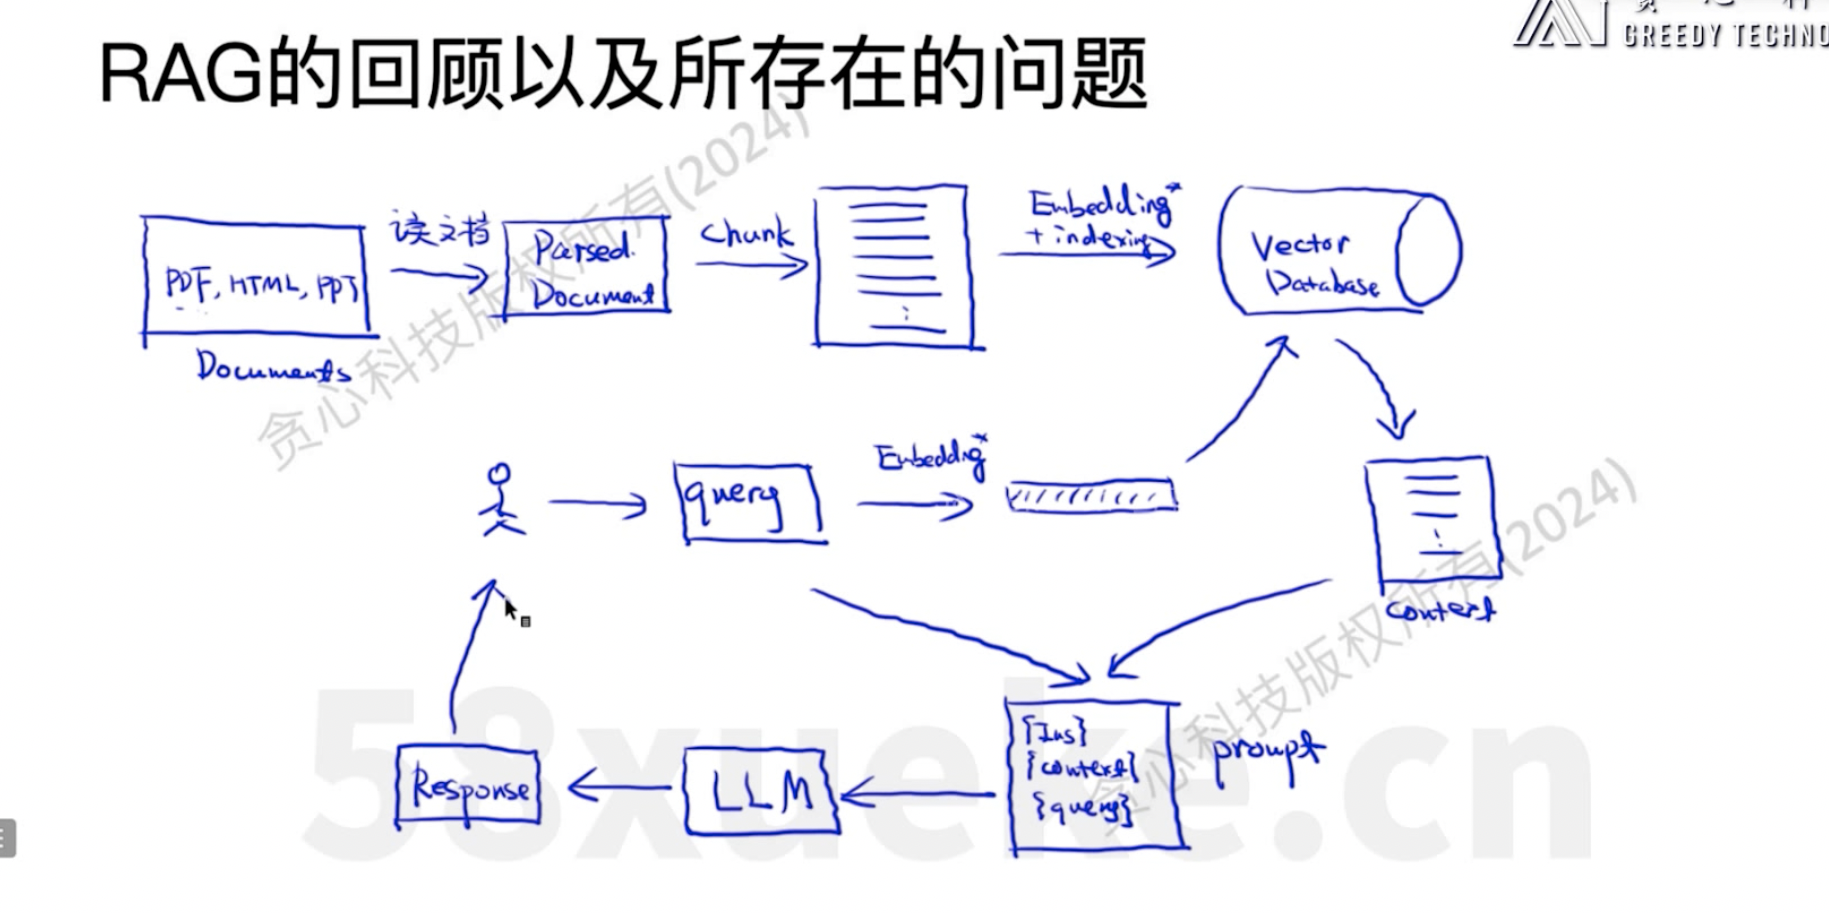 GREEDY TECHNO
RAG的回顾以及所存在的问题
PDF, HTML, PPT
Documents
读文档
Parsed
Document
Chunk
Embedding*
+ indexing
Vector
Database
query
Embedding*
context
{Ins}
{context}
{query}
prompt
LLM
Response
贪心科技版权所有(2024)
贪心科技版权所有(2024)
58xueke.cn